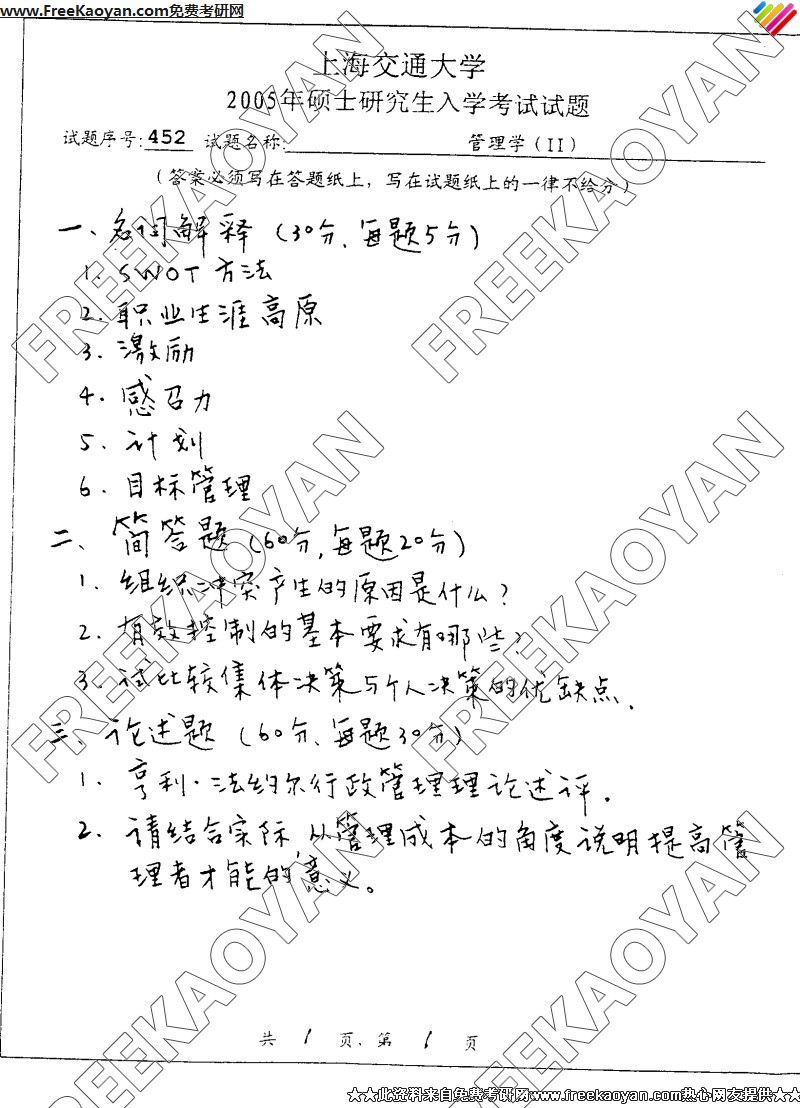 www.FreeKaoyan.com免费考研网
上海交通大学
2005年硕士研究生入学考试试题
试题序号: 452 试题名称: 管理学(II)
(答案必须写在答题纸上，写在试题纸上的一律不给分)
一、名词解释 (30分、每题5分)
1. SWOT 方法
2. 职业生涯高原
3. 激励
4. 感召力
5. 计划
6. 目标管理
二、简答题 (60分,每题20分)
1. 组织冲突产生的原因是什么?
2. 有效控制的基本要求有哪些?
3. 试比较集体决策与个人决策的优缺点.
三、论述题 (60分、每题30分)
1. 亨利·法约尔行政管理理论述评.
2. 请结合实际,从管理成本的角度说明提高管
理者才能的意义。
共 1 页、第 1 页
★★此资料来自免费考研网www.freekaoyan.com热心网友提供★★
FREEKAOYAN
FREEKAOYAN
FREEKAOYAN
FREEKAOYAN
FREEKAOYAN
FREEKAOYAN